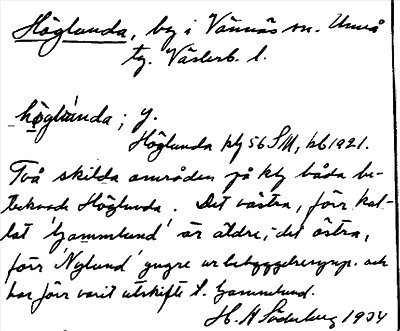 Höglunda, by i Vännäs sn. Umeå
tg. Västerb. l.
höglùnda; y.
Höglunda blj 56 SM, bb 1921.
Två skilda områden på blj båda be-
tecknade Höglunda. Det västra, förr kal-
lat 'Gammlund' är äldre; det östra,
förr 'Nylund' yngre ur bebyggelsesynp. och
har förr varit utskifte t. Gammlund.
H. A Söderberg 1934